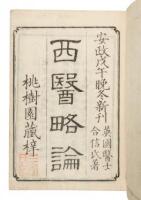 安政戊午晚冬新刊
英國醫士
合信氏著
西醫略論
桃樹園藏梓